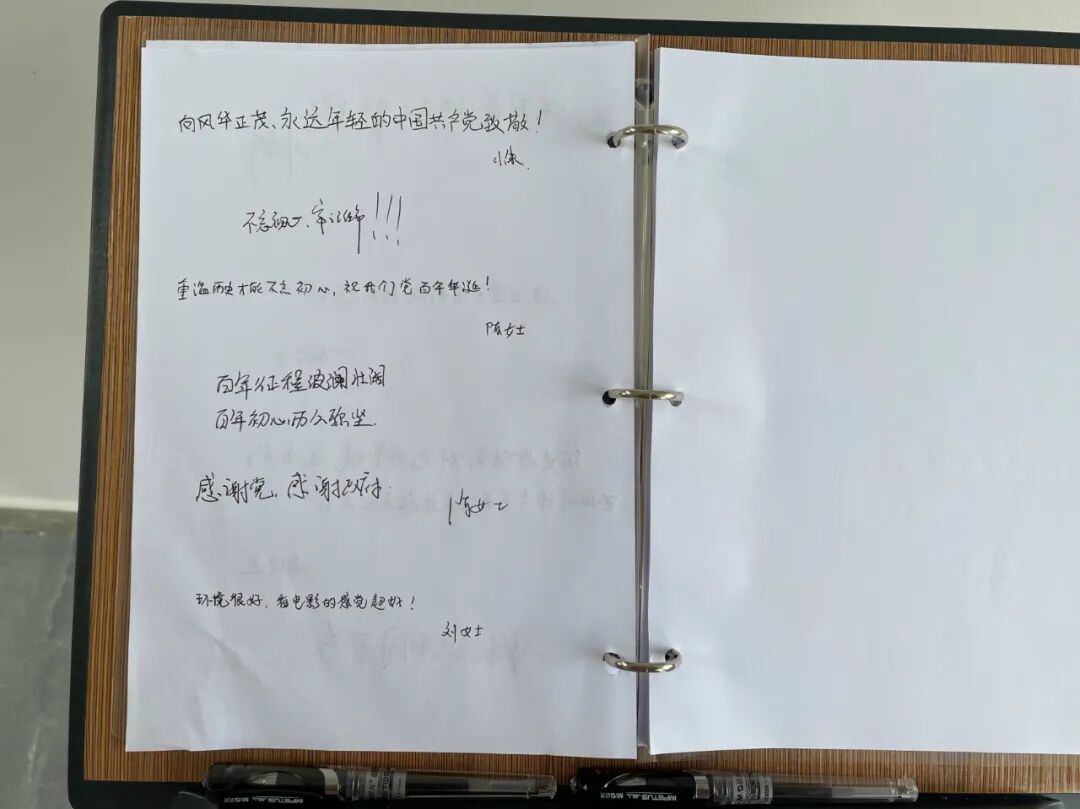 向风华正茂、永远年轻的中国共产党致敬！
小朱.
不忘初心、牢记使命！！！
重温历史才能不忘初心，祝我们党百年华诞！
陈女士
百年征程波澜壮阔
百年初心历久弥坚.
感谢党，感谢政府.
陈女士
环境很好，看电影的感觉超好！
刘女士
IMPETUS
IMPETUS